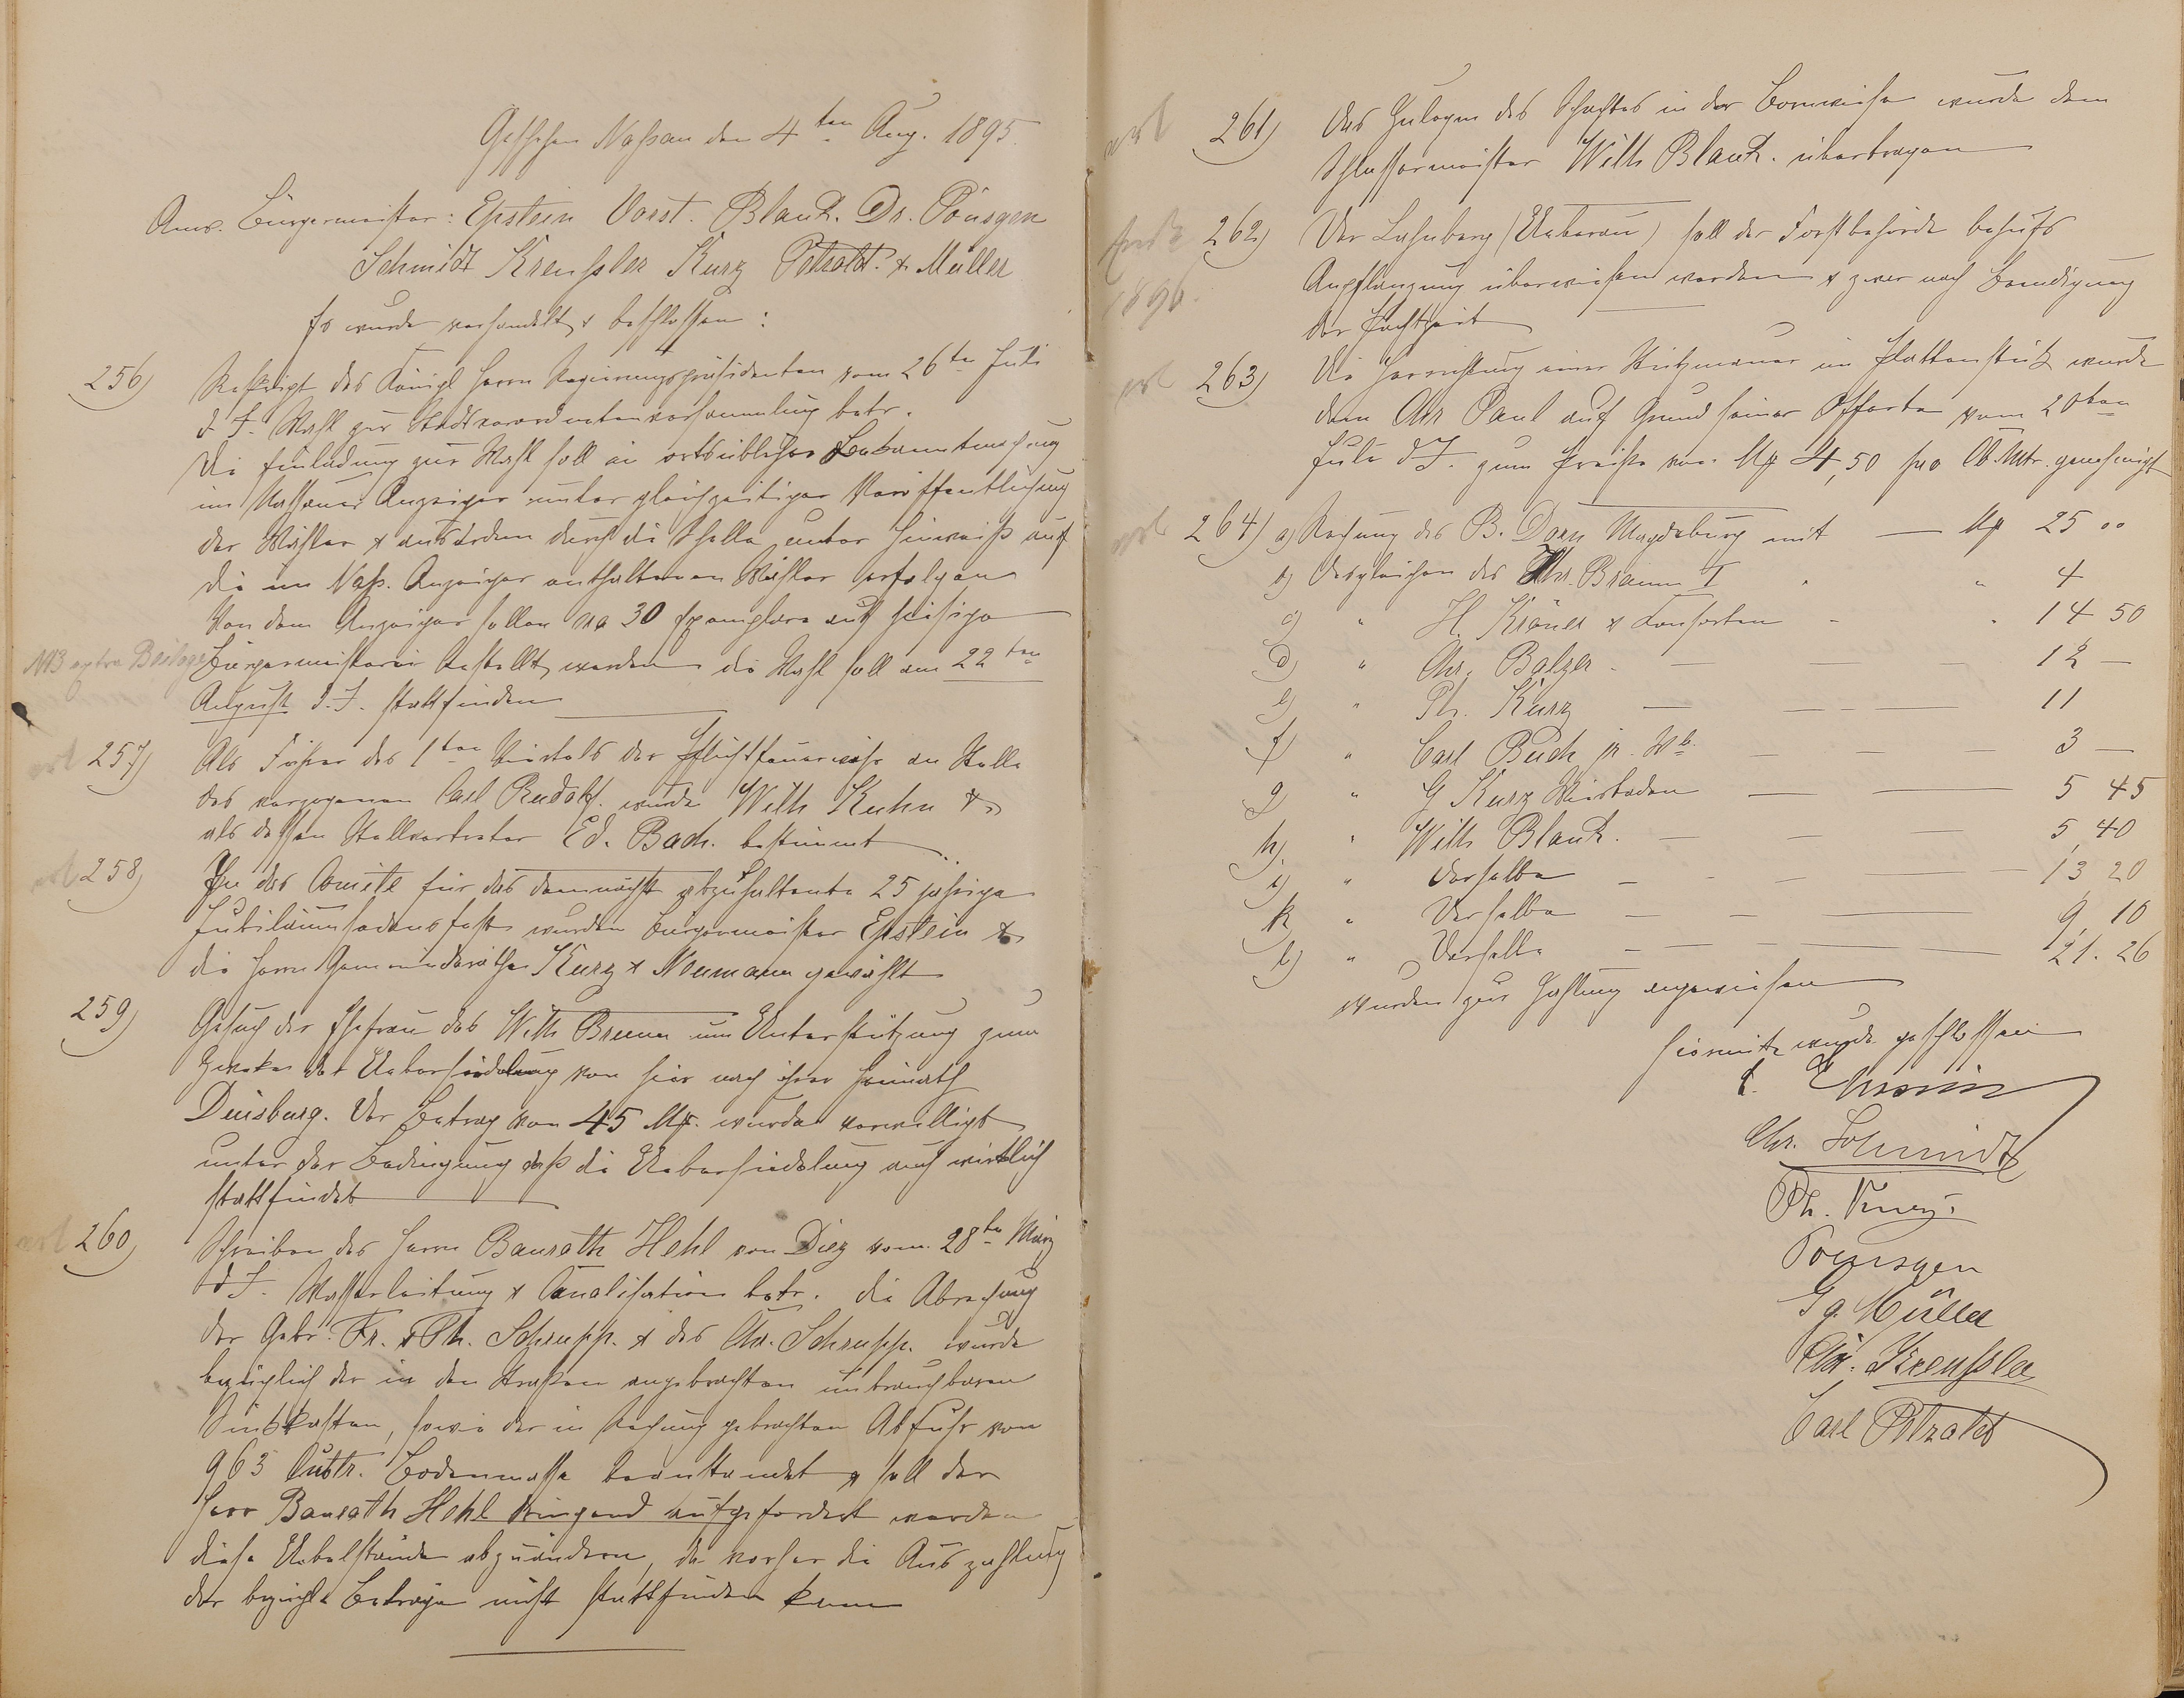 Geschehen Naßau den 4ten Aug. 1895.
Anw. Bürgermeister: Epstein Vorst. Blank. Dr. Pönsgen
Schmidt Kreußler Kurz Petzold. & Müller
Es wurde verhandelt & beschlossen:
256) Reskript des Königl Herrn Regierungspräsidenten vom 26ten Juli
d. J. Wahl zur Stadtverordnetenversammlung betr.
Die Einladung zur Wahl soll in ortsüblicher Bekanntmachung
im Nassauer Anzeiger unter gleichzeitiger Veröffentlichung
der Wähler & außerdem durch die Schelle unter Hinweiß auf
die im Naß. Anzeiger enthaltenen Wähler erfolgen
Von dem Anzeiger sollen ca 30 Exemplare auf hiesige
NB extra Beilage Bürgermeisterei bestellt werden die Wahl soll am 22ten
August d. J. stattfinden
erl 257) Als Führer des 1ten Viertels der Pflichtfeuerwehr an Stelle
des verzogenen Carl Rudolf. wurde Wilh Kuhn &
als dessen Stellvertreter Ed. Bach. bestimmt
erl 258) In das Comite für das demnächst abzuhaltende 25 jährige
Jubiläumssedansfest wurden Bürgermeister Epstein &
die Herrn Gemeinderäthe Kurz & Neumann gewählt
259) Gesuch der Ehefrau des Wilh Bremer um Unterstützung zum
Zwecke der Uebersiedelung von hier nach ihrer Heimath
Duisburg. Der Betrag von 45 Mk. wurde verwilligt
unter der Bedingung daß die Uebersiedelung auch wirklich
stattfindet
erl 260) Schreiben des Herrn Baurath Hehl von Diez vom 28ten März
d J. Wasserleitung & Canalisation betr. die Abrechnung
der Gebr. Fr. & Ph. Schrupp. & des Chr. Schrupp. wurde
bezüglich der in den Straßen angebrachten unbrauchbaren
Sinkkasten, sowie der in Rechnung gebrachten Abfuhr von
963 Cubtr. Bodenmasse beanstandet & soll der
Herr Baurath Hehl dringend aufgefordert werden
diese Uebelstände abzuändern, da vorher die Auszahlung
der bezügle Beträge nicht stattfinden kann
erl 261) Das Zulegen des Schachtes in der Bornwiese wurde dem
Schlossermeister Wilh Blank. übertragen
Ende 262) Der Lahnberg (Unterau) soll der Forstbehörde behufs
1896. Anpflanzung überwiesen werden & zwar nach Beendigung
der Pachtzeit
erl 263) Die Herrichtung einer Stützmauer im Plattenstük wurde
dem Chr Paul auf Grund seiner Offerte vom 20ten
Juli d J. zum Preiße von Mk 4,50 pro Cb.Mtr. genehmigt
erl 264) a) Rechnung des B. Dorn Magdeburg mit — Mk 25 00
b) desgleichen des Chr. Braun I " " 4
c) " H. Kröner & Consorten - " 14 50
d) " Chr. Balzer. — — — 12 —
e) " Ph. Kurz — — — 11
f) " Carl Buch jr. Wb. — — — 3 —
g " G Kurz Wiesbaden — — — 5 45
h). " Wilh Blank. — — — 5,40
i) " Derselbe — — — 13 20
k " Derselbe — — — 9,10
l) " Derselbe — — — 21. 26
wurden zur Zahlung angewiesen
Hiermit wurde geschlossen
E. Epstein
Chr. Schmidt
Ph. Kurz.
Poensgen
Gg. Müller
Chr. Kreußler
Carl Petzold